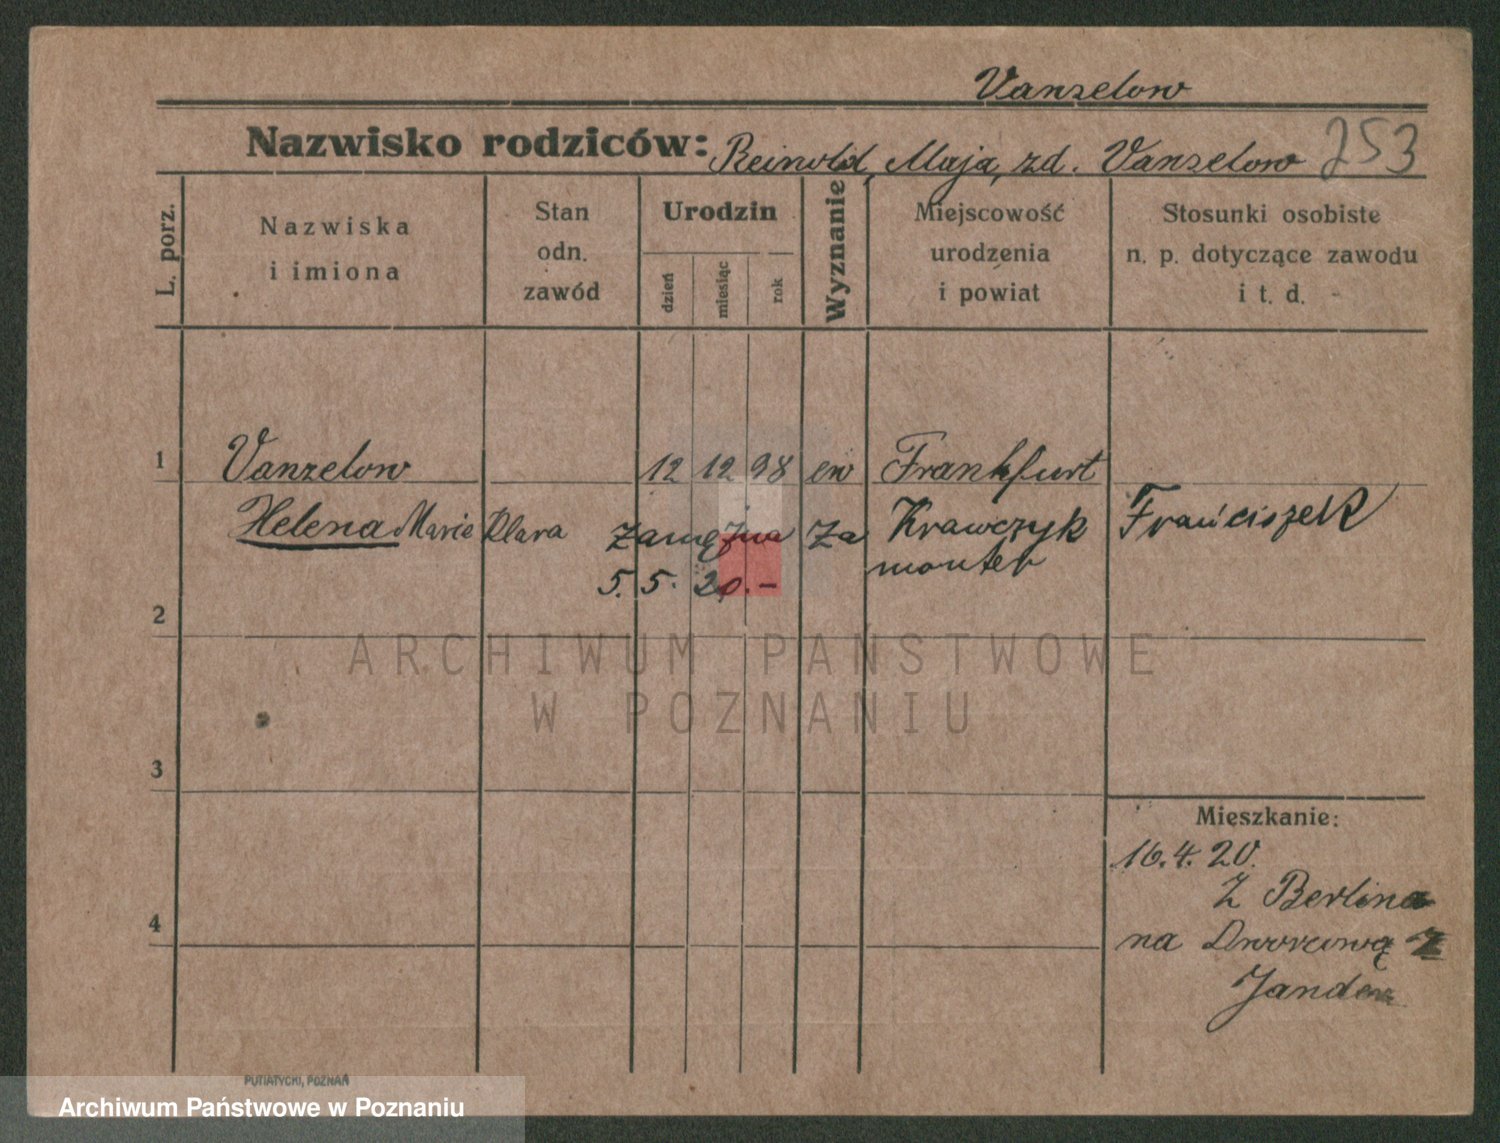 Vanselow
Nazwisko rodziców: Reinold, Maja, zd. Vanselow 253
L. porz.
Nazwiska
i imiona
Stan
odn.
zawód
Urodzin
dzień
miesiąc
rok
Wyznanie
Miejscowość
urodzenia
i powiat
Stosunki osobiste
n. p. dotyczące zawodu
i t. d.
1 Vanzelow 12 12 98 ew Frankfurt
Helena Marie Klara zamężna za Krawczyk Franciszek
monter
5. 5. 20.-
2
ARCHIWUM PAŃSTWOWE
W POZNANIU
3
Mieszkanie:
16.4.20.
Z Berlina
na Dworcową
4
PUTIATYCKI, POZNAŃ
Archiwum Państwowe w Poznaniu